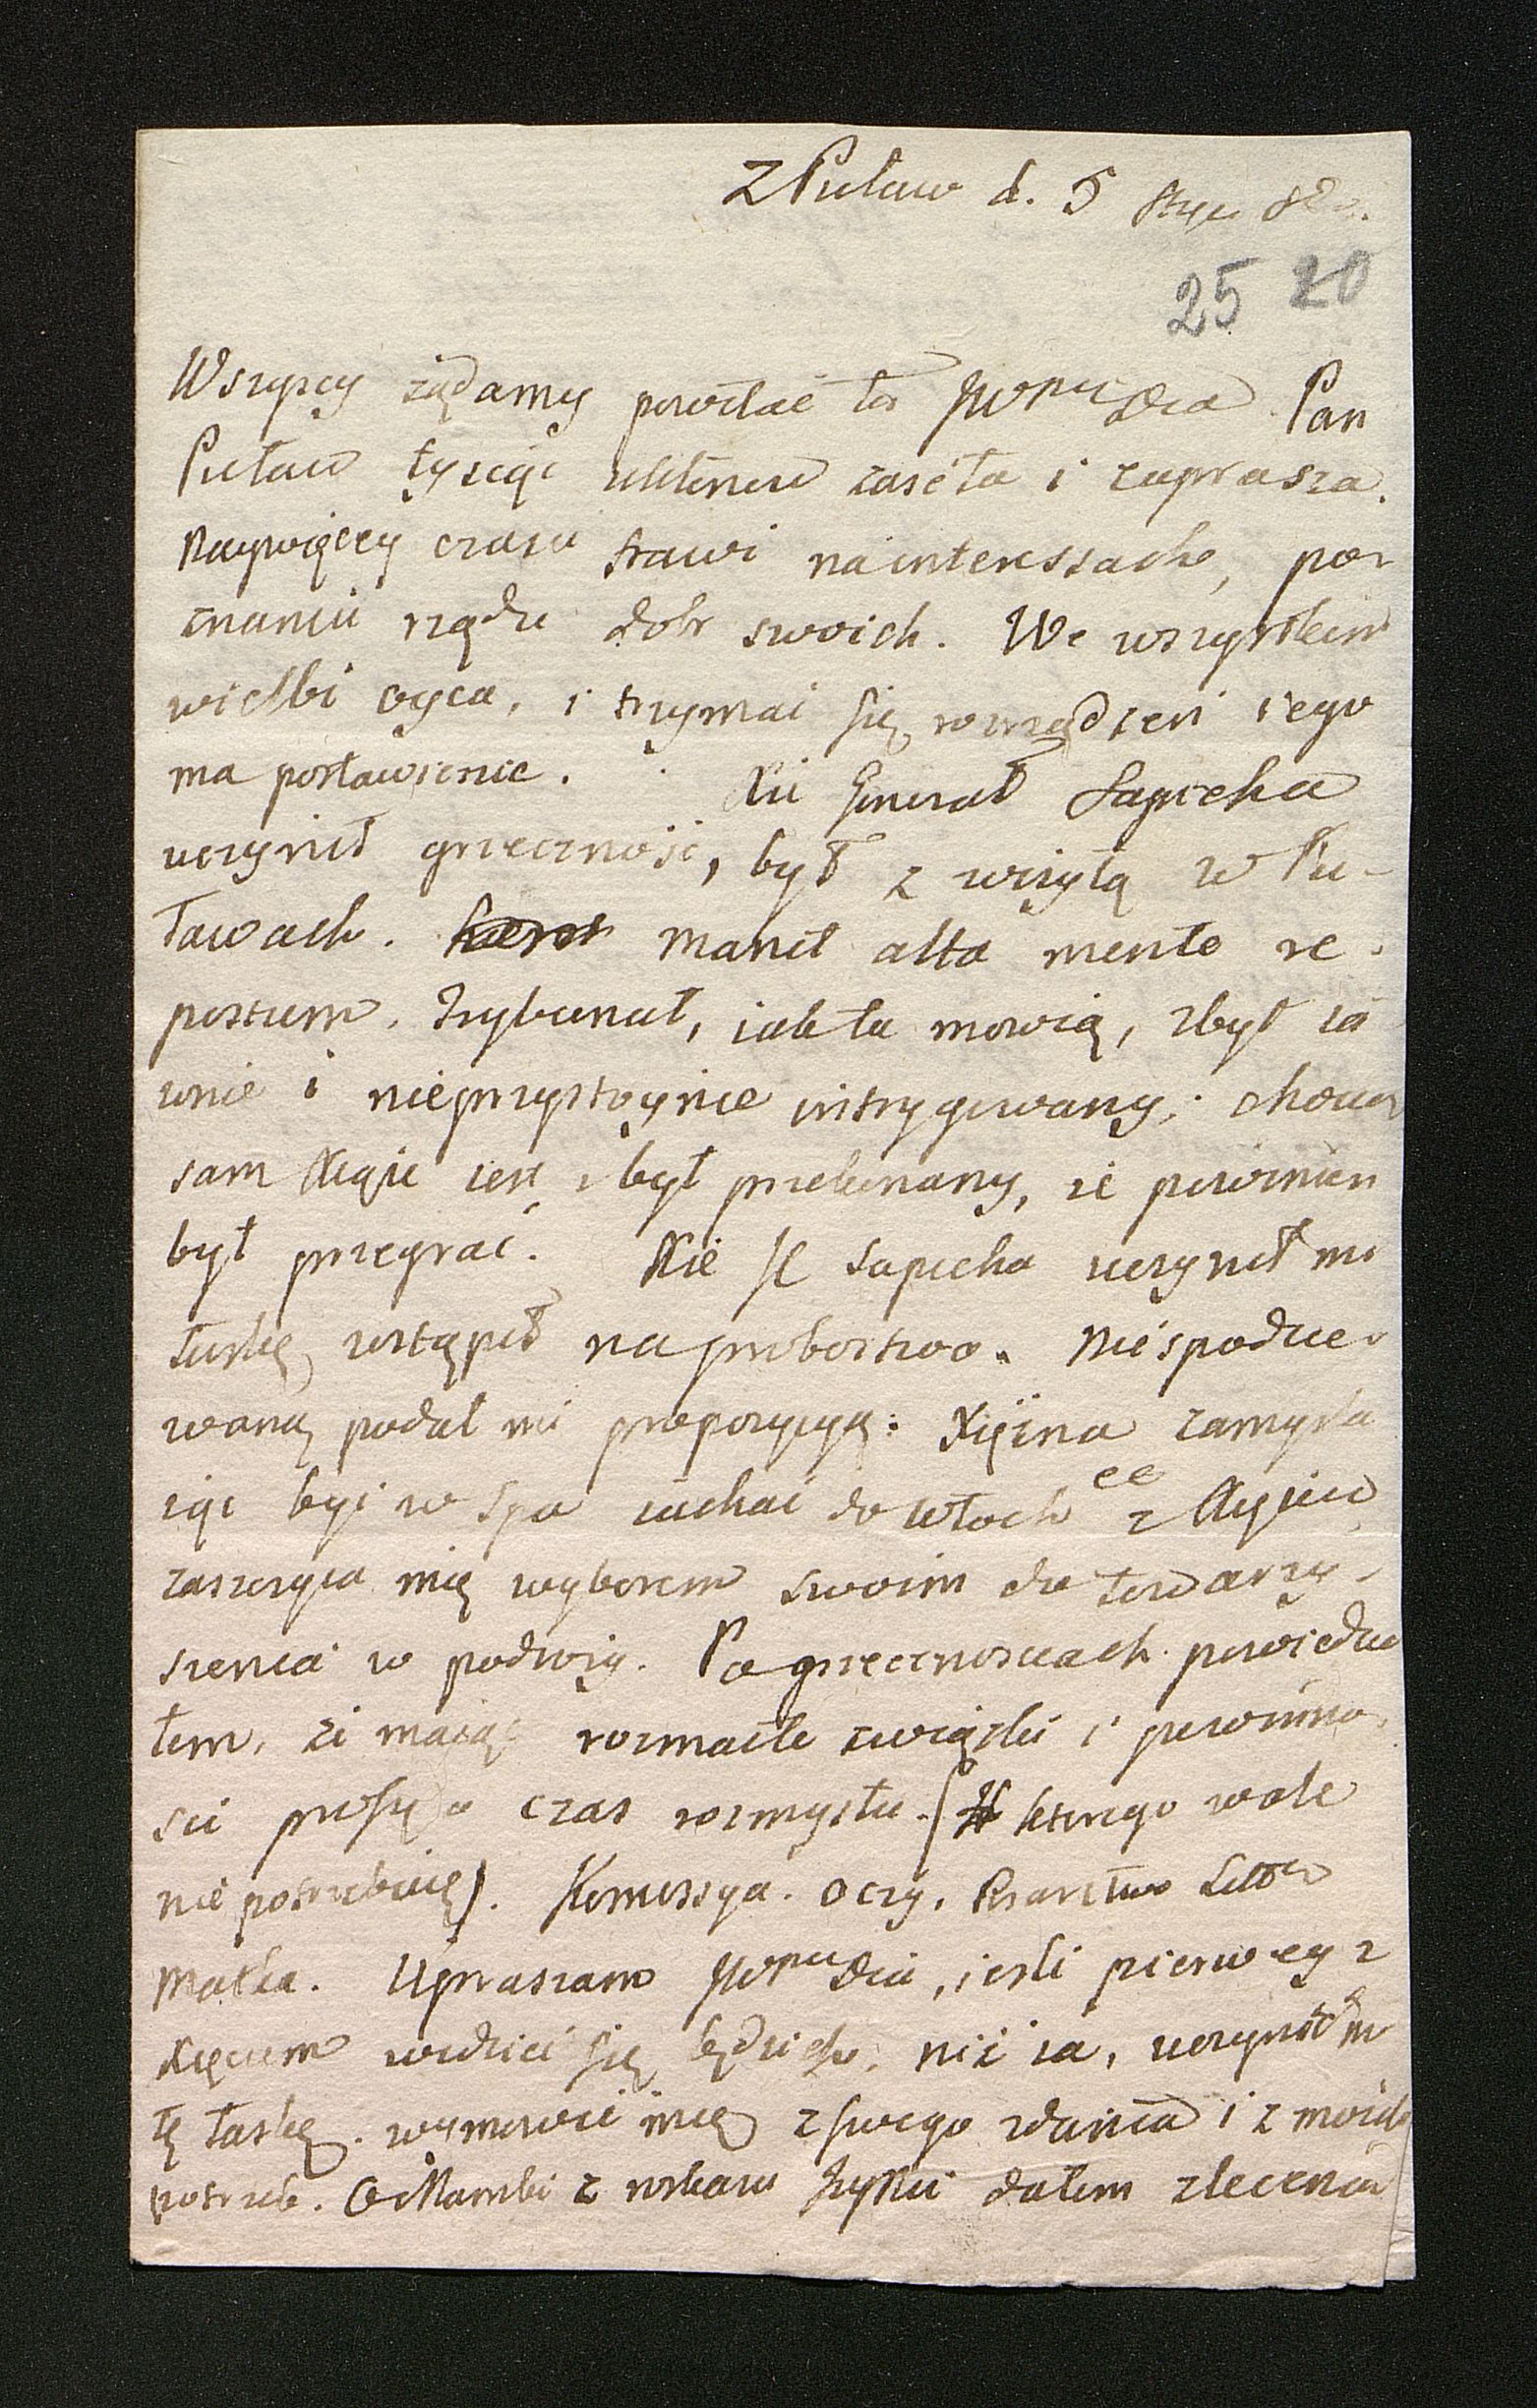 z Puław d. 5 Stycz
25 20
Wszyscy żądamy powitać tu JWPna Dia Pan
Puław tysiąc ukłonów zaseła i zaprasza.
Naywięcey czasu trawi na interessach, po-
znaniu rządu dobr swoich. We wszystkim
wielbi oyca, i trzymać się rozrządzeń iego
ma postawienie. Xże Generał Sapieha
uczynił grzeczność, był z wizytą w Pu-
ławach. manet alta mente re-
postum. Trybunał, iak tu mowią, zbyt ia
wnie i nieprzystoynie intrygowany;
sam Xiąże iest zbyt przekonany, że powinien
był przegrać. Xże JE Sapieha uczynił mi
łaskę, ustąpił na probostwo. Niespodzie-
waną podał mi propozycyą: Xiężna zamyśla
iąc być w Spa iachać do Włoch z Xięciem
zaszczyca mię wyborem swoim do towarzy-
szenia w podroży. Po grzecznosciach powiedzia
łem, że maiąc rozmaite związki i powinno-
sci proszę o czas rozmysłu. (ktorego wcale
nie potrzebuię). Kommissya. oczy. Pisarstwo Litt
Matka. Upraszam JWPna Dia, iesli pierwey z
Xięciem widzieć się będzie, niż ia, uczynić mi
tę łaskę. wymowić mię z swego zdania i z moich
potrzeb. O Mambi z dałem zlecenia